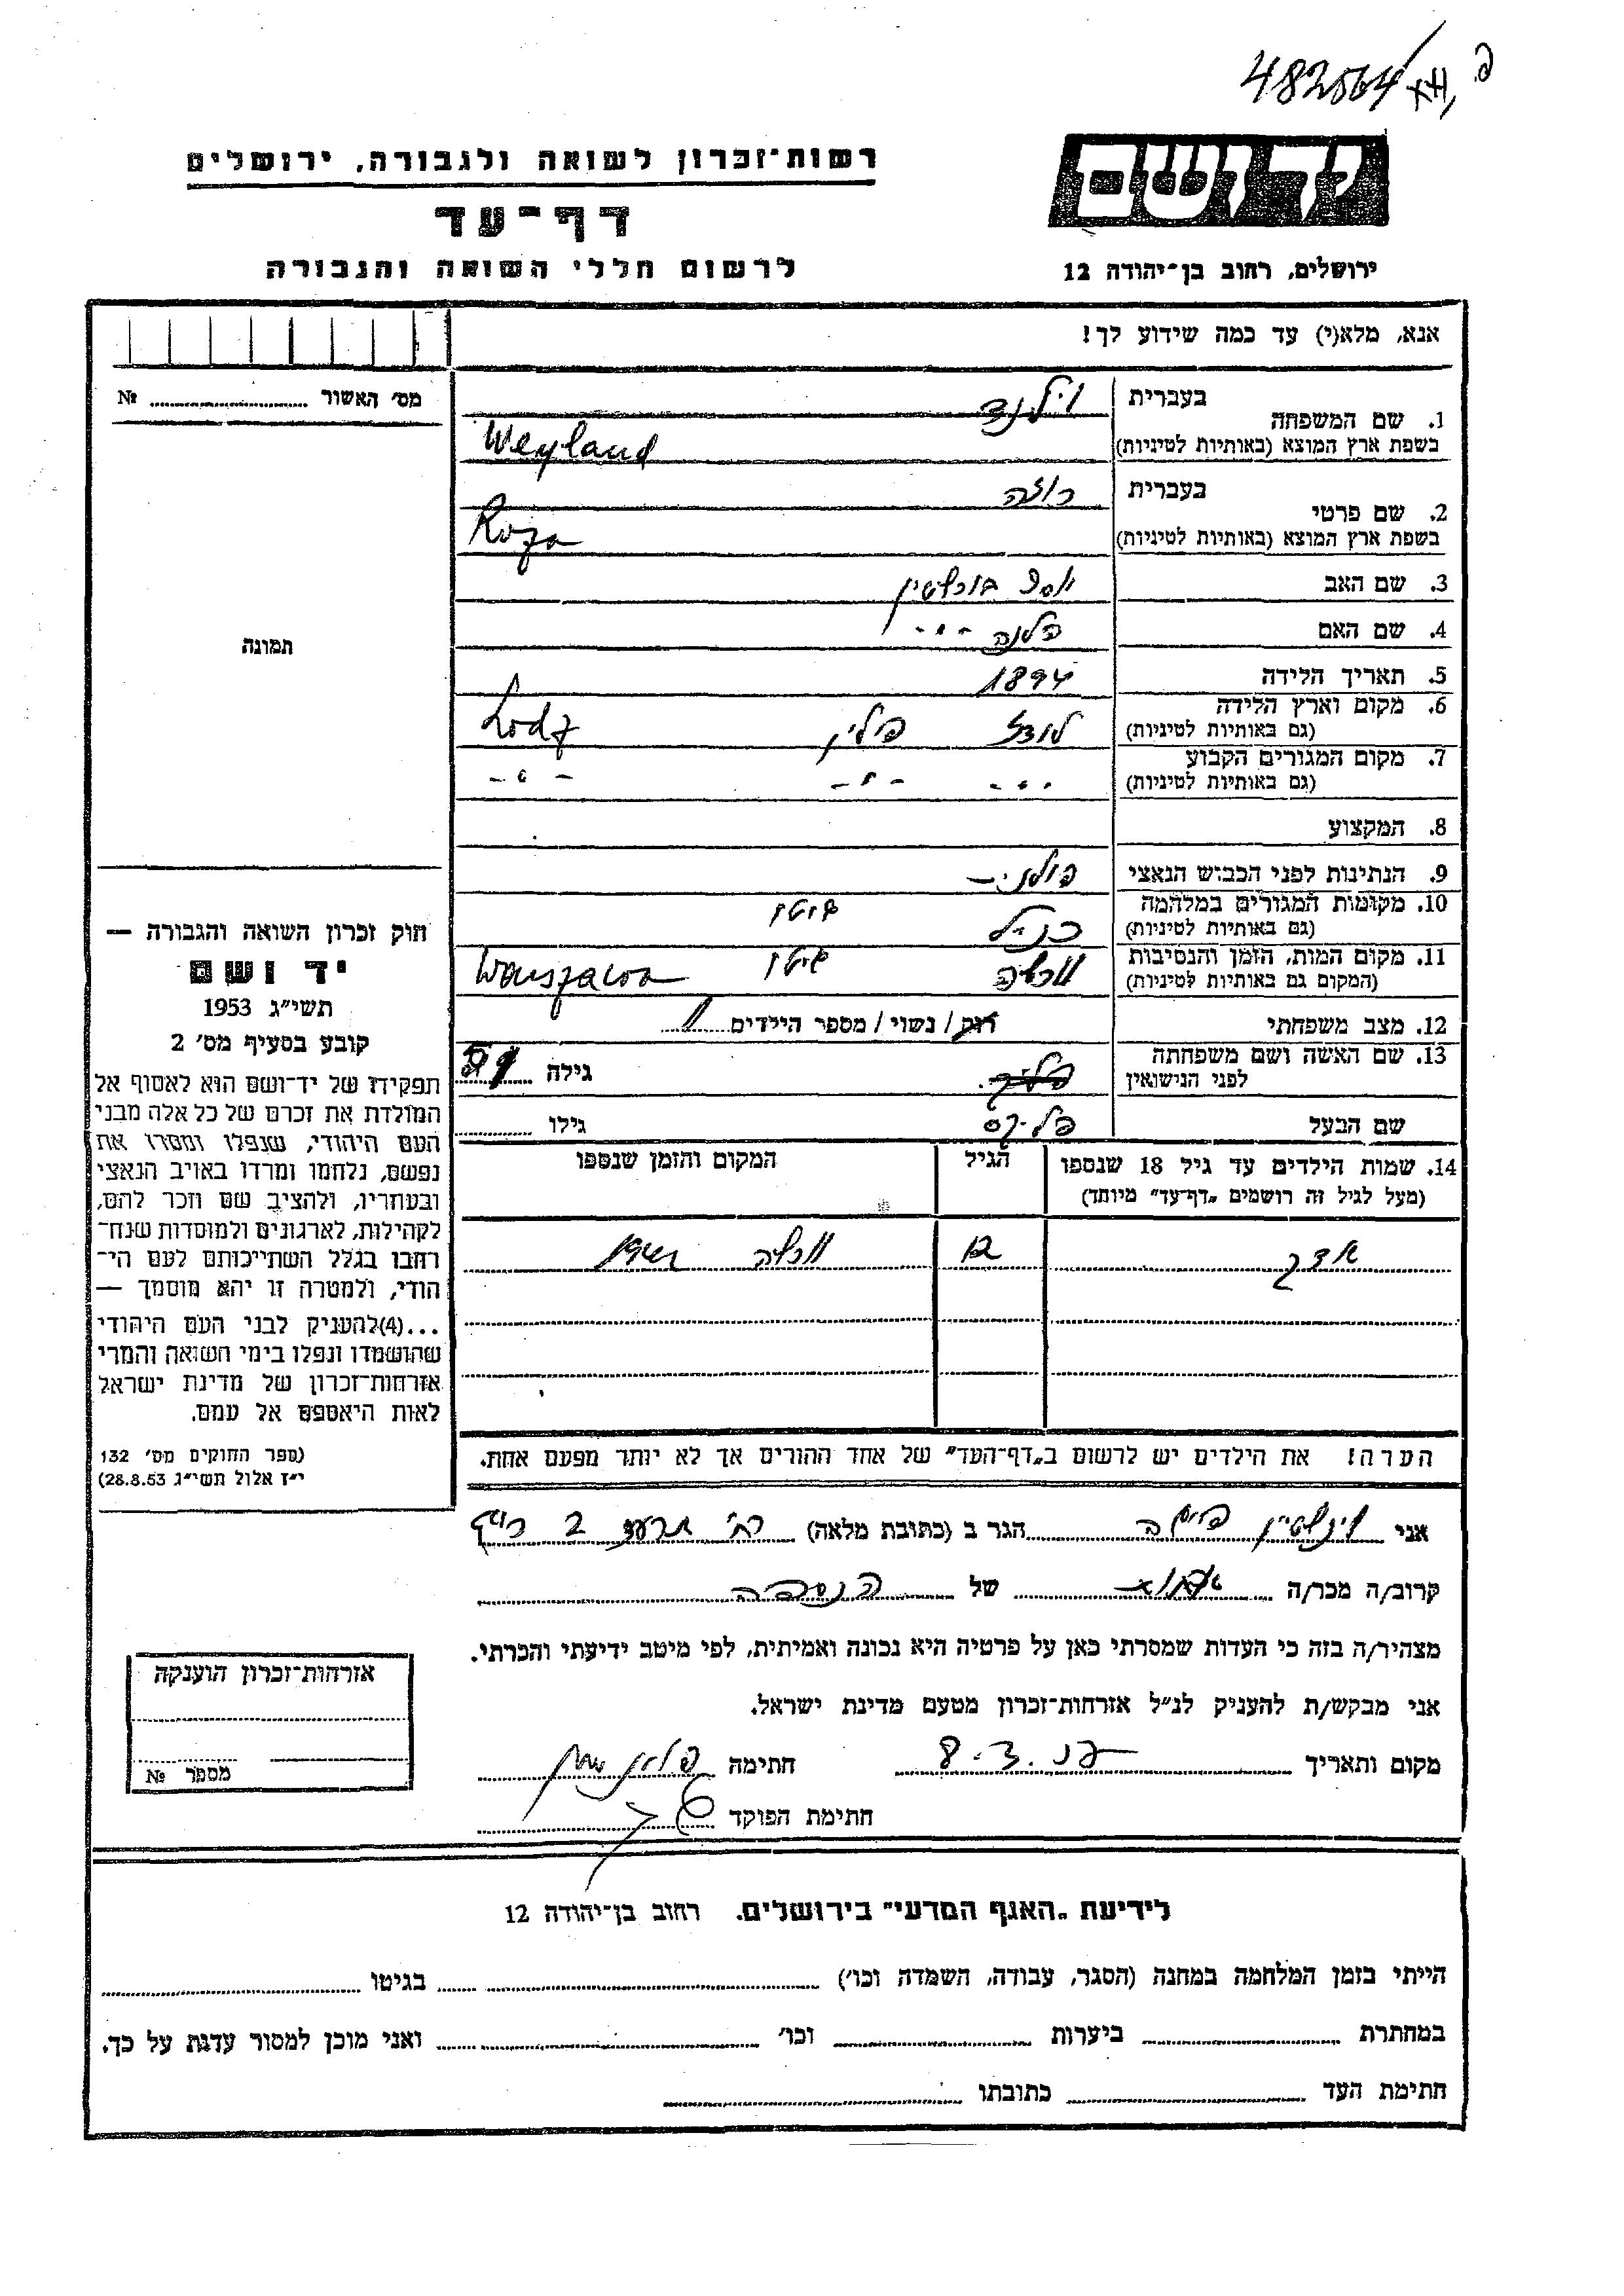 482564
רשות־זכרון לשואה ולגבורה, ירושלים
יד ושם
דף־עד
לרשום חללי השואה והגבורה
ירושלים, רחוב בן־יהודה 12
אנא, מלא(י) עד כמה שידוע לך!
מס׳ האשור № 
1. שם המשפחה
בעברית וילנד
בשפת ארץ המוצא (באותיות לטיניות) Weyland
2. שם פרטי
בעברית רוזה
בשפת ארץ המוצא (באותיות לטיניות) Roza
3. שם האב יוסף
4. שם האם -"-
5. תאריך הלידה 1894
6. מקום וארץ הלידה (גם באותיות לטיניות) לודז פולין Lodz
7. מקום המגורים הקבוע (גם באותיות לטיניות) -"- -"- -"-
8. המקצוע
9. הנתינות לפני הכבוש הנאצי פולני
10. מקומות המגורים במלחמה (גם באותיות לטיניות) כנ"ל גיטו
11. מקום המות, הזמן והנסיבות (המקום גם באותיות לטיניות) ורשה גיטו Warszawa
12. מצב משפחתי רוק / נשוי / מספר הילדים 1
13. שם האשה ושם משפחתה לפני הנישואין גילה
שם הבעל פליקס גילו
14. שמות הילדים עד גיל 18 שנספו (מעל לגיל זה רושמים „דף־עד״ מיוחד)
הגיל
המקום והזמן שנספו
אדק 12 ורשה
הערה! את הילדים יש לרשום ב„דף־העד״ של אחד ההורים אך לא יותר מפעם אחת.
תמונה
חוק זכרון השואה והגבורה —
יד ושם
תשי״ג 1953
קובע בסעיף מס׳ 2
תפקידו של יד־ושם הוא לאסוף אל
המולדת את זכרם של כל אלה מבני
העם היהודי, שנפלו ומסרו את
נפשם, נלחמו ומרדו באויב הנאצי
ובעוזריו, ולהציב שם וזכר להם,
לקהילות, לארגונים ולמוסדות שנח־
רבו בגלל השתייכותם לעם הי־
הודי, ולמטרה זו יהא מוסמך —
...(4)להעניק לבני העם היהודי
שהושמדו ונפלו בימי השואה והמרי
אזרחות־זכרון של מדינת ישראל
לאות היאספם אל עמם.
(ספר החוקים מס׳ 132
י״ז אלול תשי״ג 28.8.53)
אני וינשטיין הגר ב (כתובת מלאה) רח׳
קרוב/ה מכר/ה של הנספה
מצהיר/ה בזה כי העדות שמסרתי כאן על פרטיה היא נכונה ואמיתית, לפי מיטב ידיעתי והכרתי.
אני מבקש/ת להעניק לנ״ל אזרחות־זכרון מטעם מדינת ישראל.
מקום ותאריך חתימה
חתימת הפוקד
אזרחות־זכרון הוענקה
מספר №
לידיעת „האגף המדעי״ בירושלים. רחוב בן־יהודה 12
הייתי בזמן המלחמה במחנה (הסגר, עבודה, השמדה וכו׳) בגיטו
במחתרת ביערות וכו׳ ואני מוכן למסור עדות על כך.
חתימת העד כתובתו